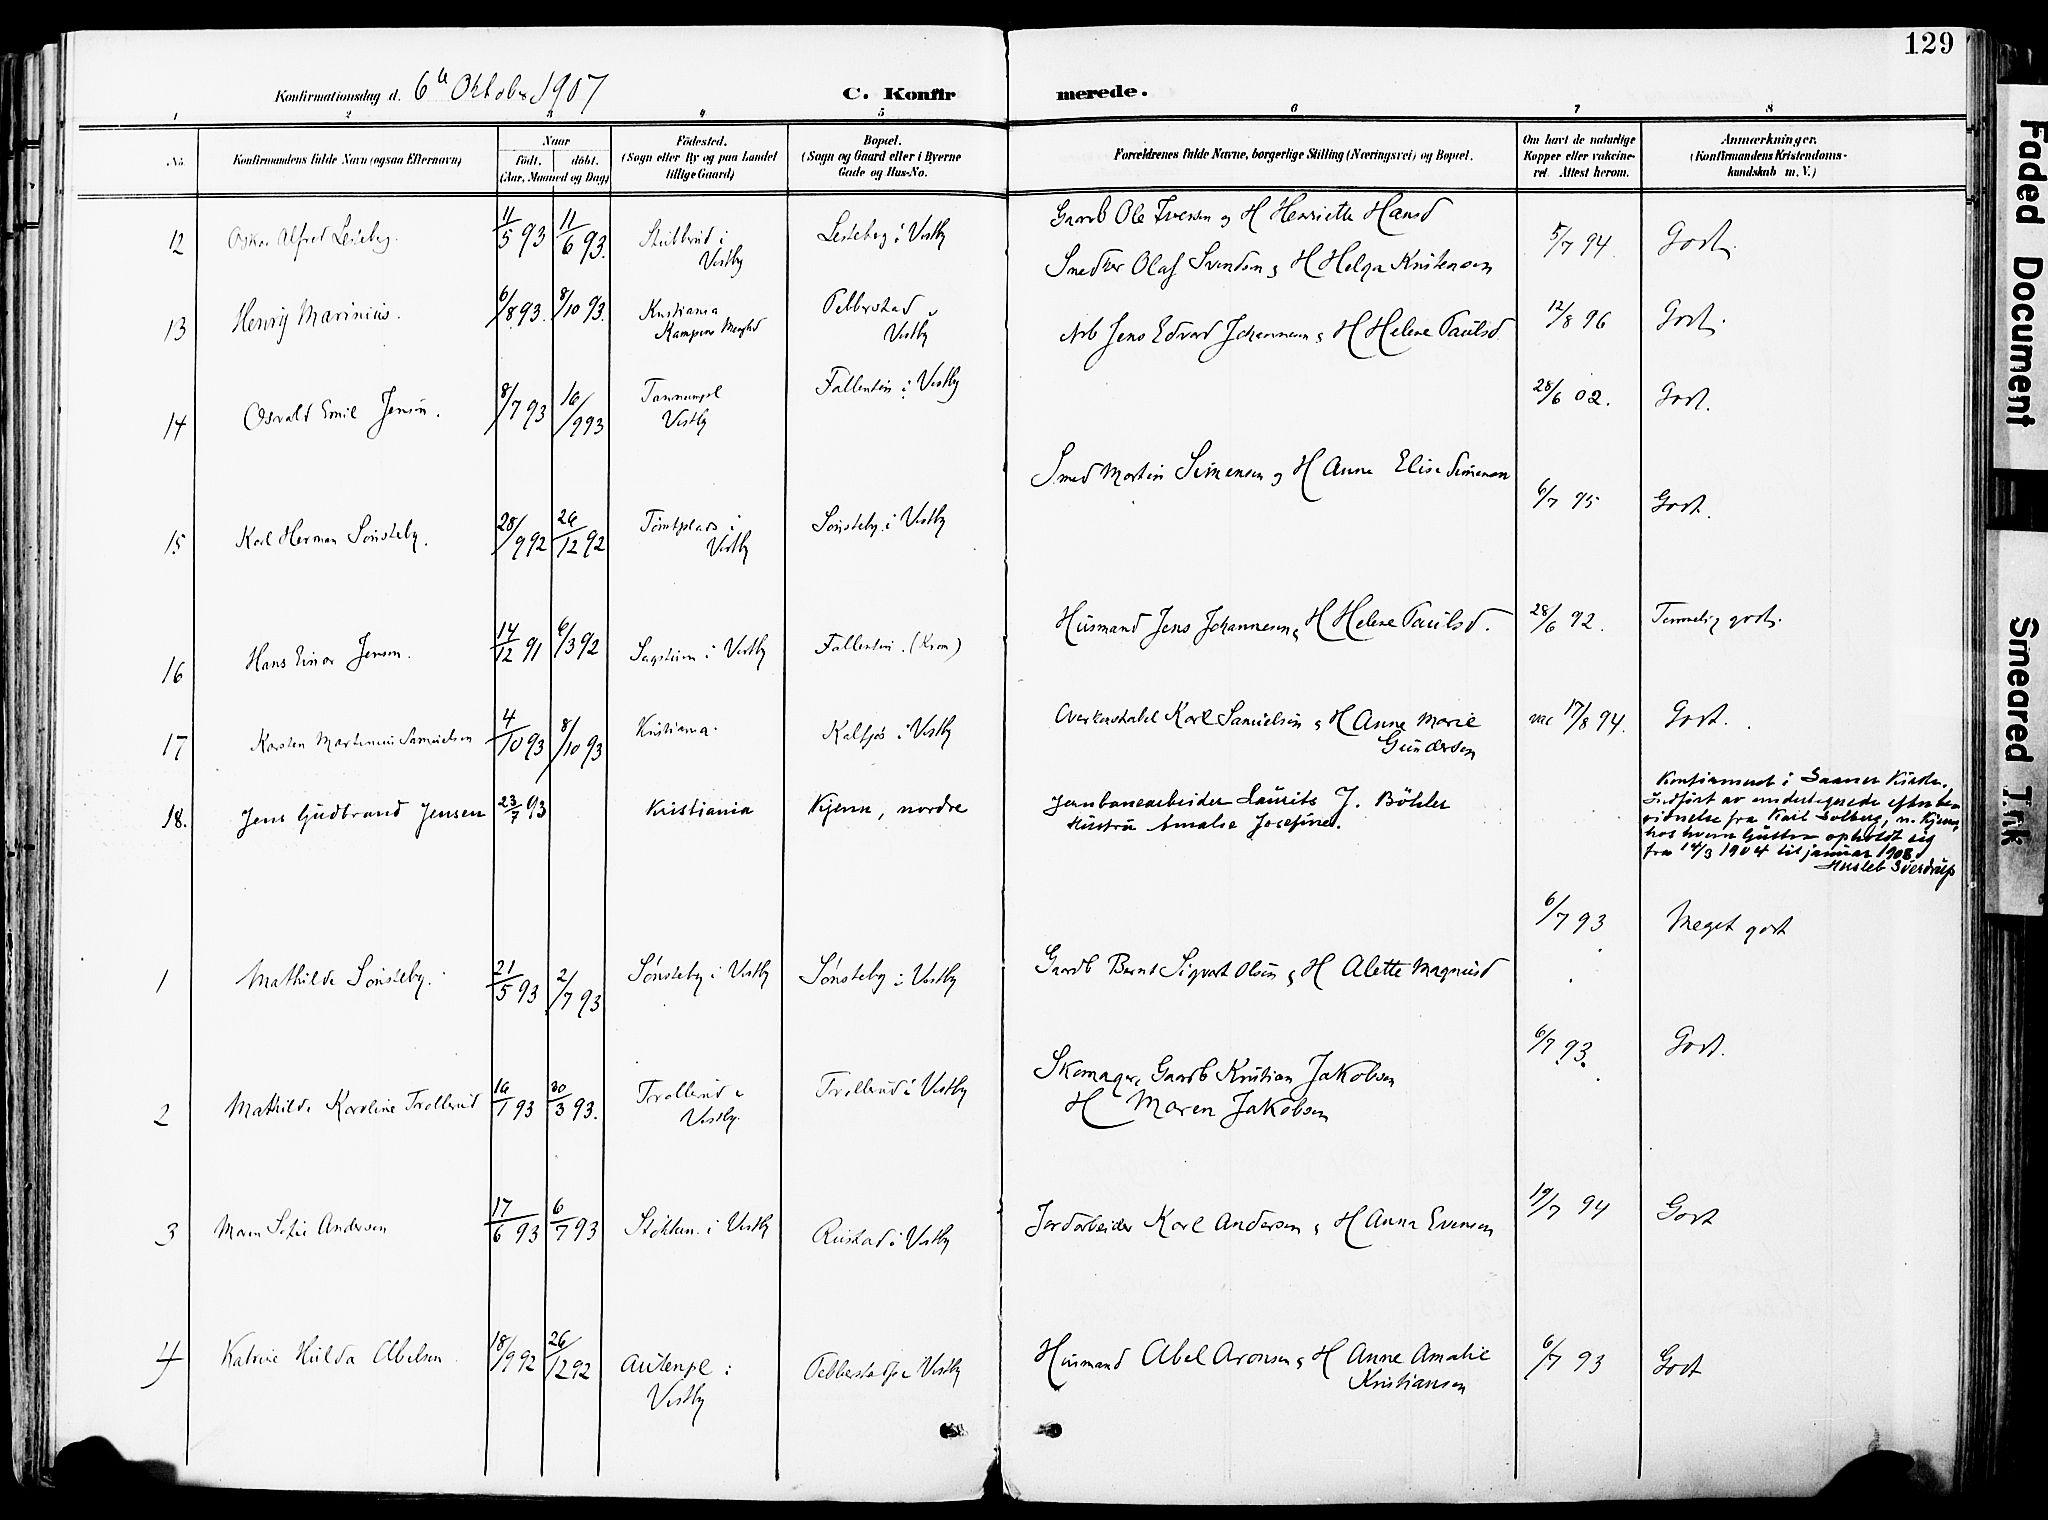 129
Konfirmationsdag d. 6te Oktober 1907
C. Konfir merede.
1 2 3 4 5 6 7 8
No. Konfirmandens fulde Navn (ogsaa Efternavn) Naar födt. döbt. (Aar, Maaned og Dag) Födested. (Sogn eller By og paa Landet tillige Gaard) Bopæl. (Sogn og Gaard eller i Byerne Gade og Hus-No. Forældrenes fulde Navne, borgerlige Stilling (Næringsvei) og Bopæl. Om havt de naturlige Kopper eller vakcineret. Attest herom. Anmærkninger. (Konfirmandens Kristendomskundskab m. V.)
12 Oskar Alfred Lesteberg. 11/5 93 11/6 93. Stubberud i Vestby Lesteberg i Vestby Gaardb Ole Iversen og H Henriette Hansd 5/7 94. Godt.
Smed Olaf Svendsen & H Helga Kristensen
13 Henrij Marinius. 6/8 93. 8/10 93. Kristiania Kampens Menighed Pebberstad i Vestby Arb Jens Edvard Johannesen & H Helene Paulsd. 12/8 96 Godt.
14 Osvald Emil Jensen. 8/7 93 16/9 93 Vestby Fallentin i Vestby 28/6 02. Godt.
Smed Martin Simensen og H Anne Elise Simensen
15 Karl Herman Sønsteby. 28/9 92 26/12 92 Tomtplads i Vestby Sønsteby i Vestby 6/7 95 Godt.
16 Hans Einar Jensen. 14/12 91 6/3 92 i Vestby Fallentin. (Krom) Husmand Jens Johannesen & H Helene Paulsd. 28/6 92. Temmelig godt.
17 Karsten Martinius Samuelsen 4/10 93 8/10 93 Kristiania. i Vestby Karl Samuelsen & H Anne Marie Gundersen vac 17/8 94. Godt.
18. Jens Gudbrand Jensen 23/7 93 Kristiania Kjenn, nordre Jernbanearbeider Laurits J. Böhler Hustru Amalie Josefine.
Konfirmeret i Saaner Kirke.
Indført av undertegnede efter be
vidnelse fra Karl Solberg, n. Kjenn,
hos hvem Gutten opholdt sig
fra 14/3 1904 til januar 1908
Sverdrup
1 Mathilde Sønsteby. 21/5 93 2/7 93 Sønsteby i Vestby Sønsteby i Vestby Gaardb Bernt Sigvart Olsen & H Alette Magnusd 6/7 93 Meget godt
2 Mathilde Karoline Trollerud 16/1 93 30/3 93. Trollerud i Vestby. Trollerud i Vestby Skomager, Gaardb Kristian Jakobsen H Maren Jakobsen 6/7 93. Godt.
3 Maren Sofie Andersen 17/6 93 6/7 93 Stokken i Vestby Rustad i Vestby Jordarbeider Karl Andersen & H Anna Evensen 19/7 94 Godt
4 Katrine Hulda Abelsen 18/9 92 26/12 92 Autenpl i Vestby Vestby Husmand Abel Aronsen & H Anne Amalie Kristiansen 6/7 93 Godt
Faded Document
Smeared Ink